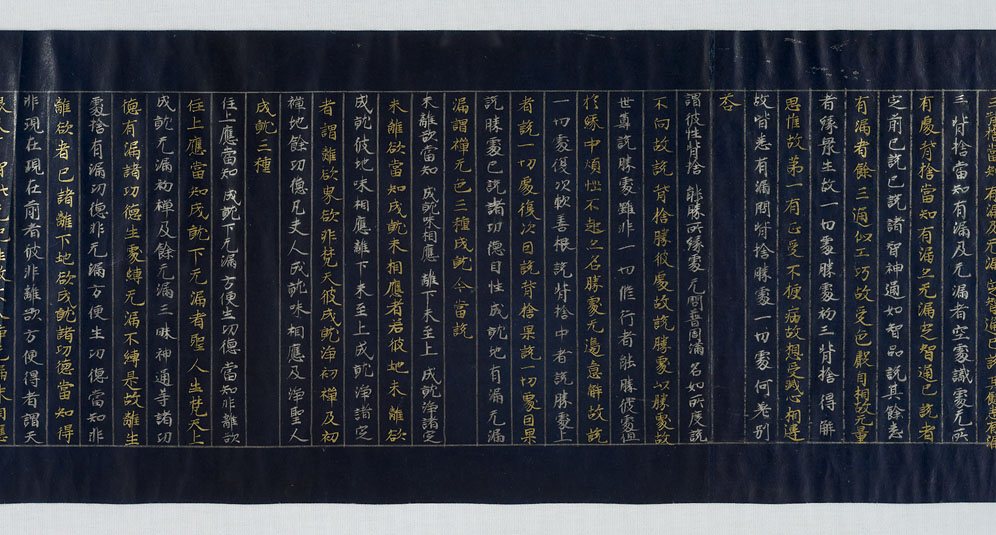 三背捨當知有漏及无漏者空處識處无所
有處背捨當知有漏亦无漏定智通已說者
定前已說已說諸智神通如智品說其餘悉
有漏者餘三通似工巧故受色厭自相故无量
者緣眾生故一切處勝處初三背捨得解
思惟故第一有正受不梗疾故想受滅心相違
故皆悉有漏問背捨勝處一切處何差別
答
謂彼性背捨 能勝所緣處 无間普周滿 名如所度說
不向故說背捨勝彼處故說勝處以勝處故
世尊說勝處雖非一切修行者能勝彼處值
於緣中煩惱不起亦名勝處无邊意解故說
一切處復次軟善根說背捨中者說勝處上
者說一切處復次因說背捨果說一切處因果
說勝處已說諸功德自性成就地有漏无漏
漏謂禪无色三種成就今當說
未離欲當知 成就味相應 離下未至上 成就淨諸定
未離欲當知成就味相應者若彼地未離欲
成就彼地味相應離下未至上成就淨諸定
者謂離欲界欲非梵天彼成就淨初禪及初
禪地餘功德凡夫人成就味相應及淨聖人
成就三種
住上應當知 成就下无漏 方便生功德 當知非離欲
住上應當知成就下无漏者聖人生梵天上
成就无漏初禪及餘无漏三昧神通等諸功
德有漏諸功德生處縛无漏不縛是故離生
處捨有漏功德非无漏方便生功德當知非
離欲者已諸離下地欲成就諸功德當知得
非現在現在前者彼非離欲方便得者謂天